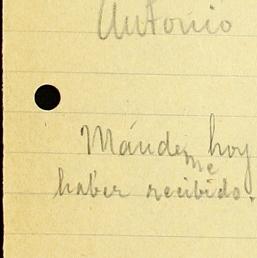 Antonio
Mánde me hoy
haber recibido.